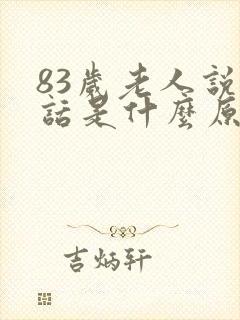 83歲老人説
話是什麼原
吉炳轩